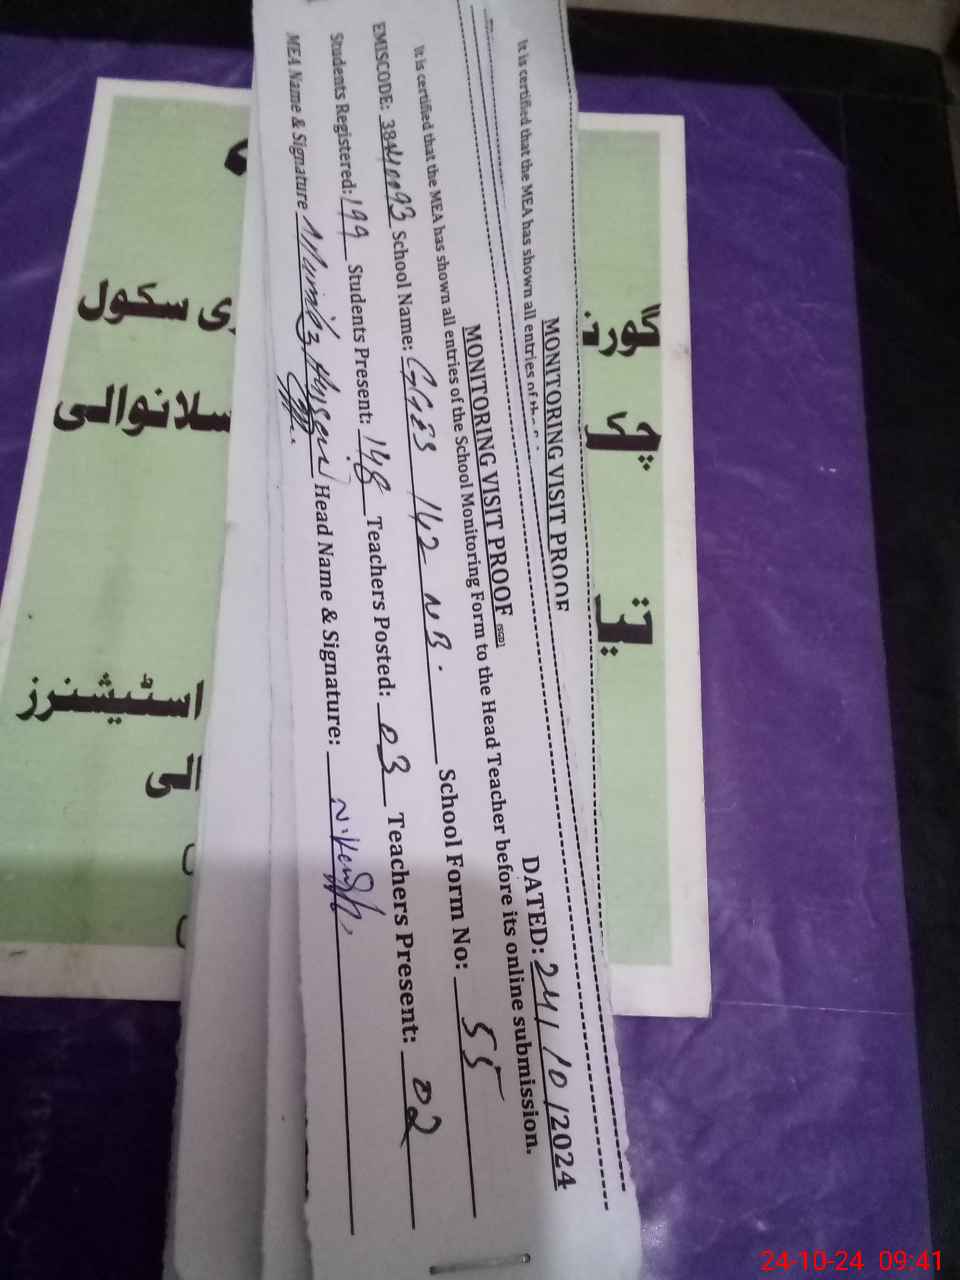 It is certified that the MEA has shown all entries of the
MONITORING VISIT PROOF
MONITORING VISIT PROOF (SGD)
DATED: 24/10/2024
It is certified that the MEA has shown all entries of the School Monitoring Form to the Head Teacher before its online submission.
EMISCODE: School Name: GGES 142 NB. School Form No: 55
Students Registered: 199 Students Present: 148 Teachers Posted: 03 Teachers Present: 02
MEA Name & Signature Head Name & Signature:
گورن
ری سکول
چک
سلانوالی
اسٹیشنرز
الی
24-10-24 09:41